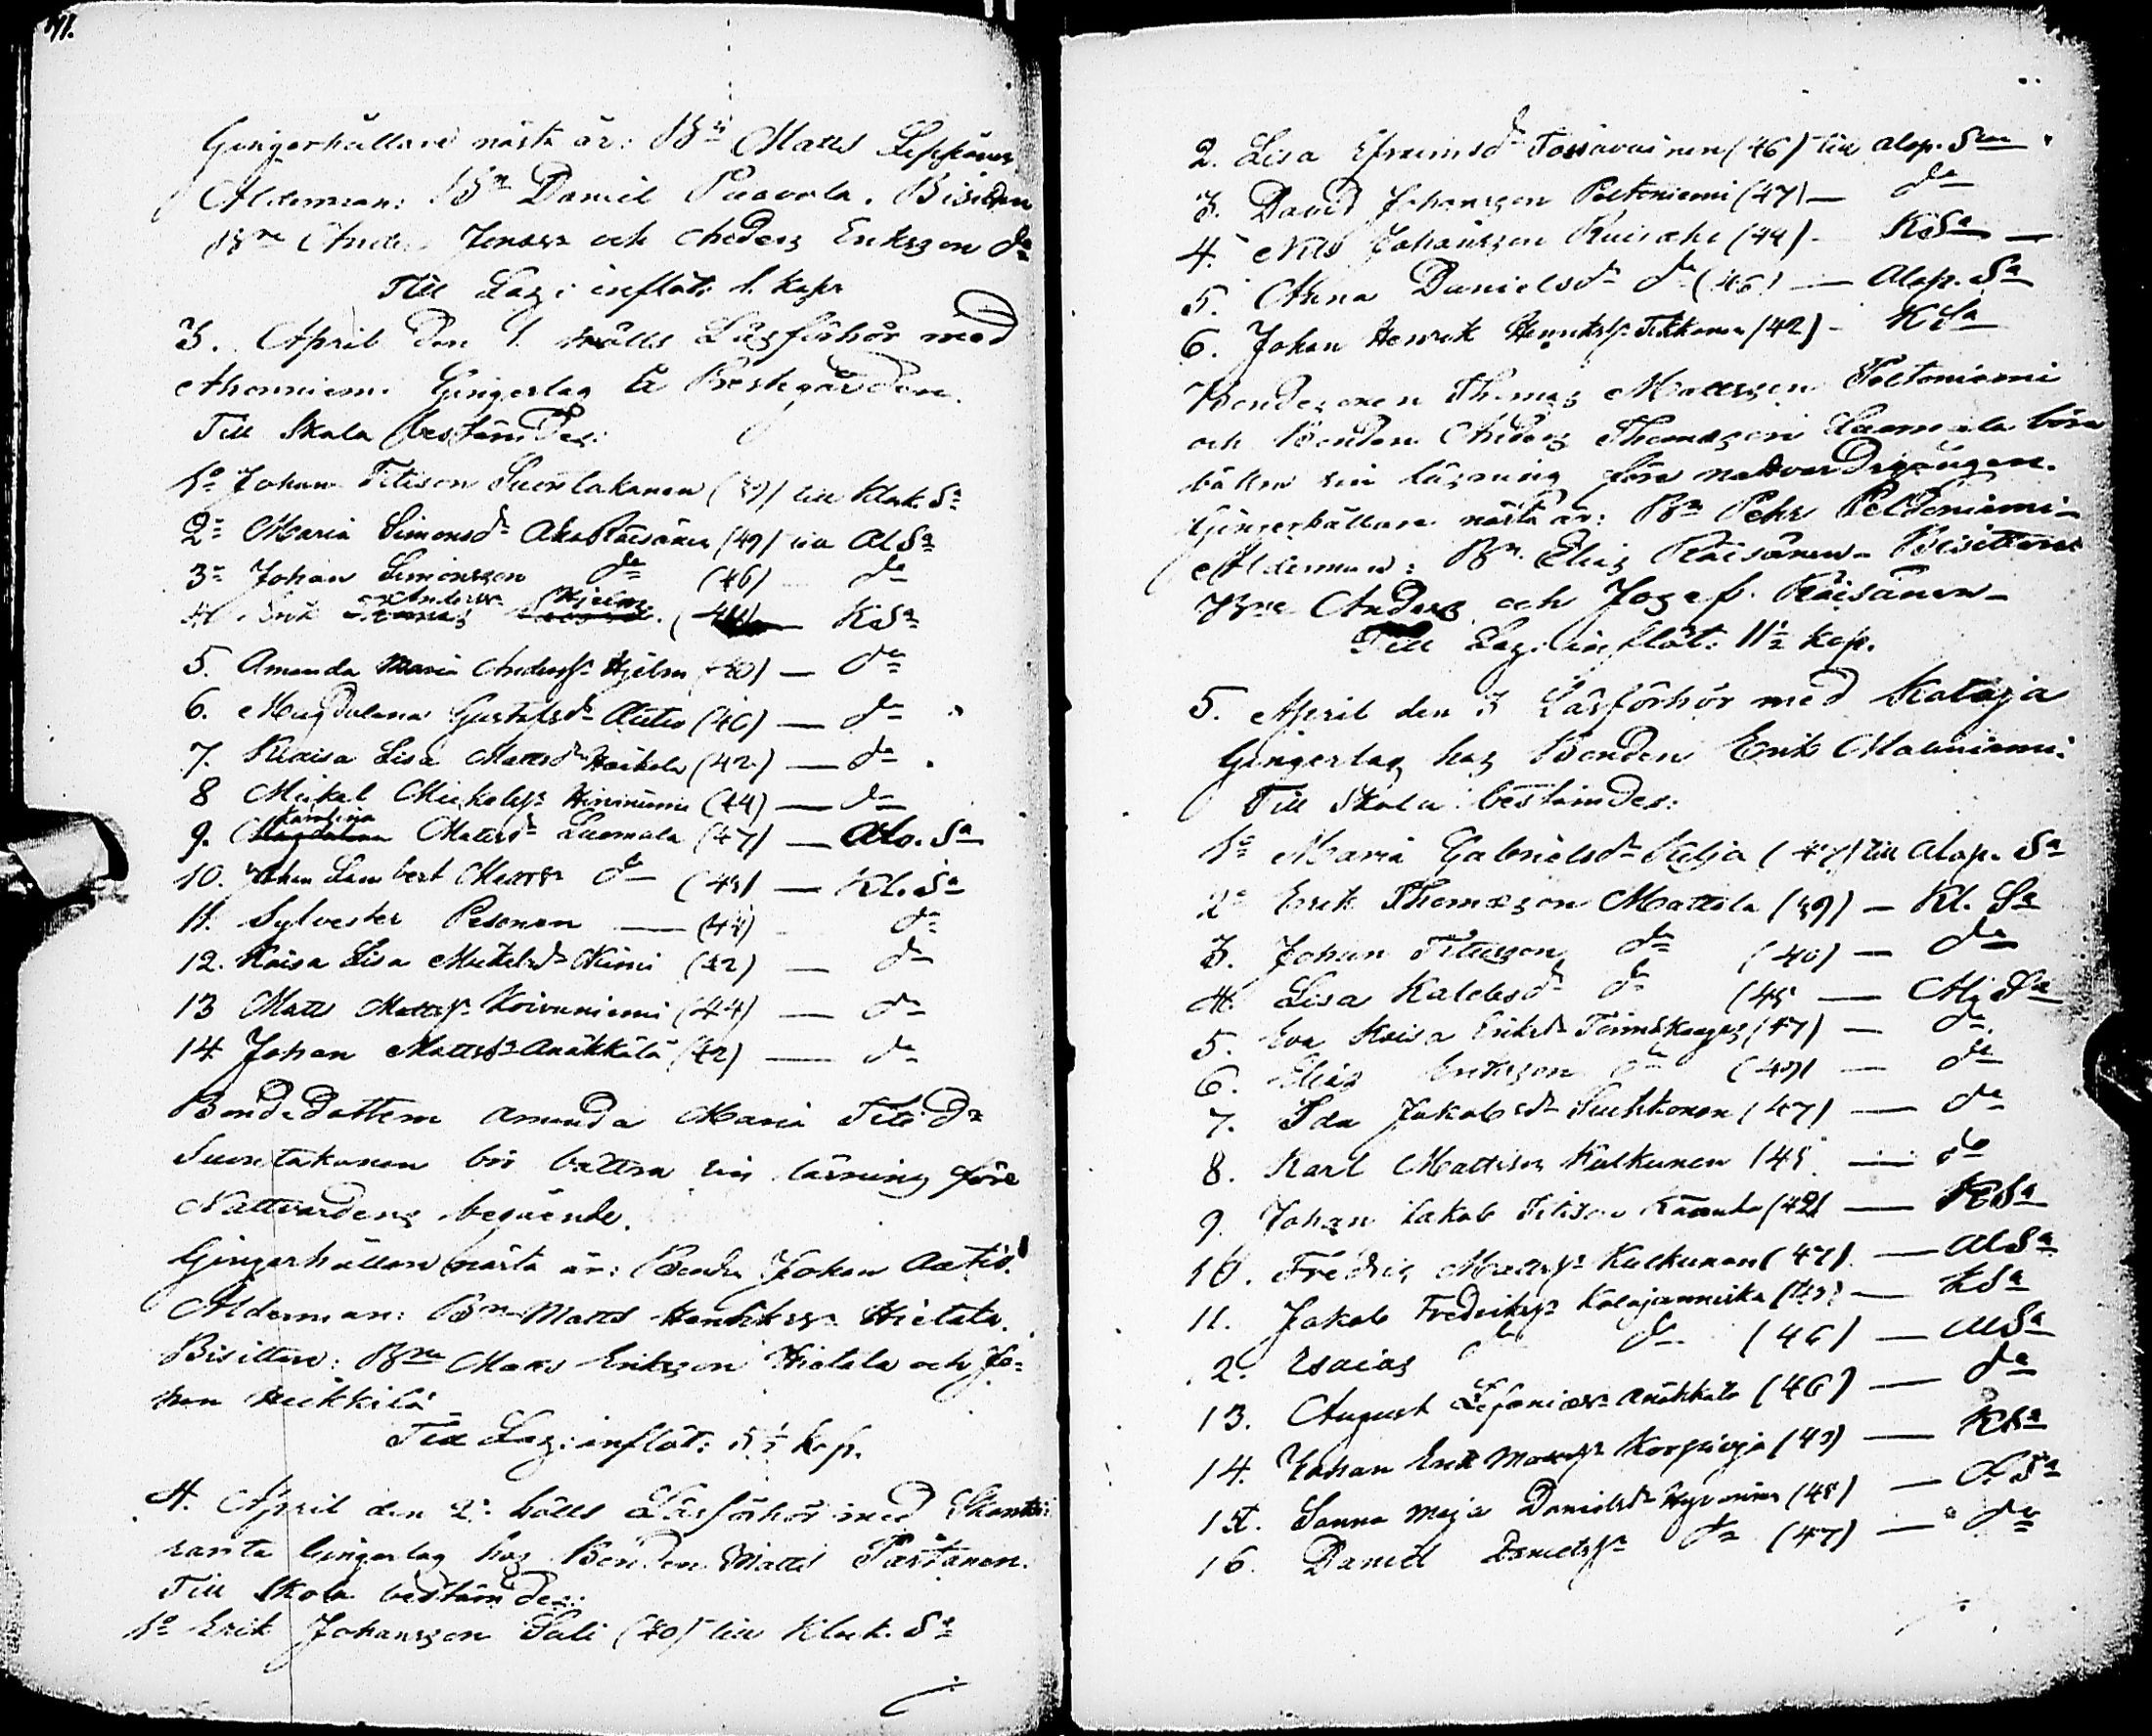 Gingerhållare nästa år: Bn Matts Leppänen
Ålderman: Bn Daniel Paavola. Bisittare
Bne Anders Jonass och Anders Eriksson do
Till Laz: inflöt: 1. Kopr
3. April den 1. hölls Läsförhör med
Ahonniemi Gingerlag å Prestgården.
Till Skola bestämdes:
1o Johan Titison Suontakanen (39) till Klock. Sa
2o Maria Simonsdr Aho Räisänen (49) till Al Sa
3o Johan Simonsson do (46) — do
4 Erik Anderss Hjelm (44) — K Sa
5. Amanda Maria Andersdr Hjelm (40) — do
6. Magdalena Gustafsdr Autio (40) — do
7. Kaisa Lisa Mattsdr Heikola (42) — do
8 Mikel Mickelss Hiviniemi (44) — do
9. Karolina Mattsdr Luomala (47) — Alo. Sa
10. Johan Lambert Mattss do (43) — Kl. Sa
11. Sylvester Pesonen — (44) — do
12. Kaisa Lisa Mickelsdr Niemi (42) — do
13 Matts Mattss Koivuniemi (44) — do
14 Johan Mattss Anäkkälä (42) — do
Bondedottern Amanda Maria Titi dr
Suontakanen bör bättra sin läsning före
Nattvardens begående.
Gingerhållare nästa år: Bonden Johan Autio.
Ålderman: Bn Matts Henrikss Hietala.
Bisittare: Bne Matts Eriksson Hietala och Jo=
han Heikkilä
Till Laz: inflöt: 5 1/2 kop.
4. April den 2: hölls Läsförhör med
ranta Gingerlag hos Bonden Matts Partanen.
Till Skola bestämdes:
1o Erik Johansson Sali (40) till Klock. Sa
2. Lisa Efraimsdr Tossavainen (46) till Alop. Sa
3. David Johansson Peltoniemi (47) — do
4. Nils Johansson Ruisaho (44) — K Sa
5. Anna Danielsdr do (46) — Alop. Sa
6. Johan Henrik Henrikss Tikkanen (42) — Kl Sa
Bondesonen Thomas Mattsson Peltoniemi
och Bonden Anders Thomasson Luomala böra
bättra sin läsning före nattvardsgången.
Gingerhållare nästa år: Bn Pehr Peltoniemi
Ålderman: Bn. Elias Räisänen Bisittare
Bne Anders och Josef Räisänen
Till Laz: inflöt: 11 1/2 kop.
5. April den 3 Läsförhör med Kataja
Gingerlag hos Bonden Erik Malmiemi.
Till Skola bestämdes:
1o Maria Gabrielsdr Kelja (47) till Alop. Sa
2o Erik Thomasson Mattila (39) — Kl. Sa
3. Johan Titusson do (40) — do
4. Lisa Kalebsdr do (45 — Al Sa
5. Eva Kaisa Eriksdr (47) — do
6. Elias Eriksson do (49) — do
7. Ida Jakobsdr Suhkonen (47) — do
8. Karl Mattson Kulkunen (45 — do
9. Johan Jakob Titison (42) — Kl Sa
10. Fredrik Mattss Kulkunen (47) — Al Sa
11. Jakob Fredrikss Kalajanniska (43) — K Sa
12. Esaias do do (46) — Al Sa
13. August Zefaniass Anäkkälä (46) — do
14. Johan Erik Mattss Korpioja (43) — Kl Sa
15. Sanna Maja Danielsdr Hyvärinen (48) — A. Sa
16. Daniel Danielss do (47) — do